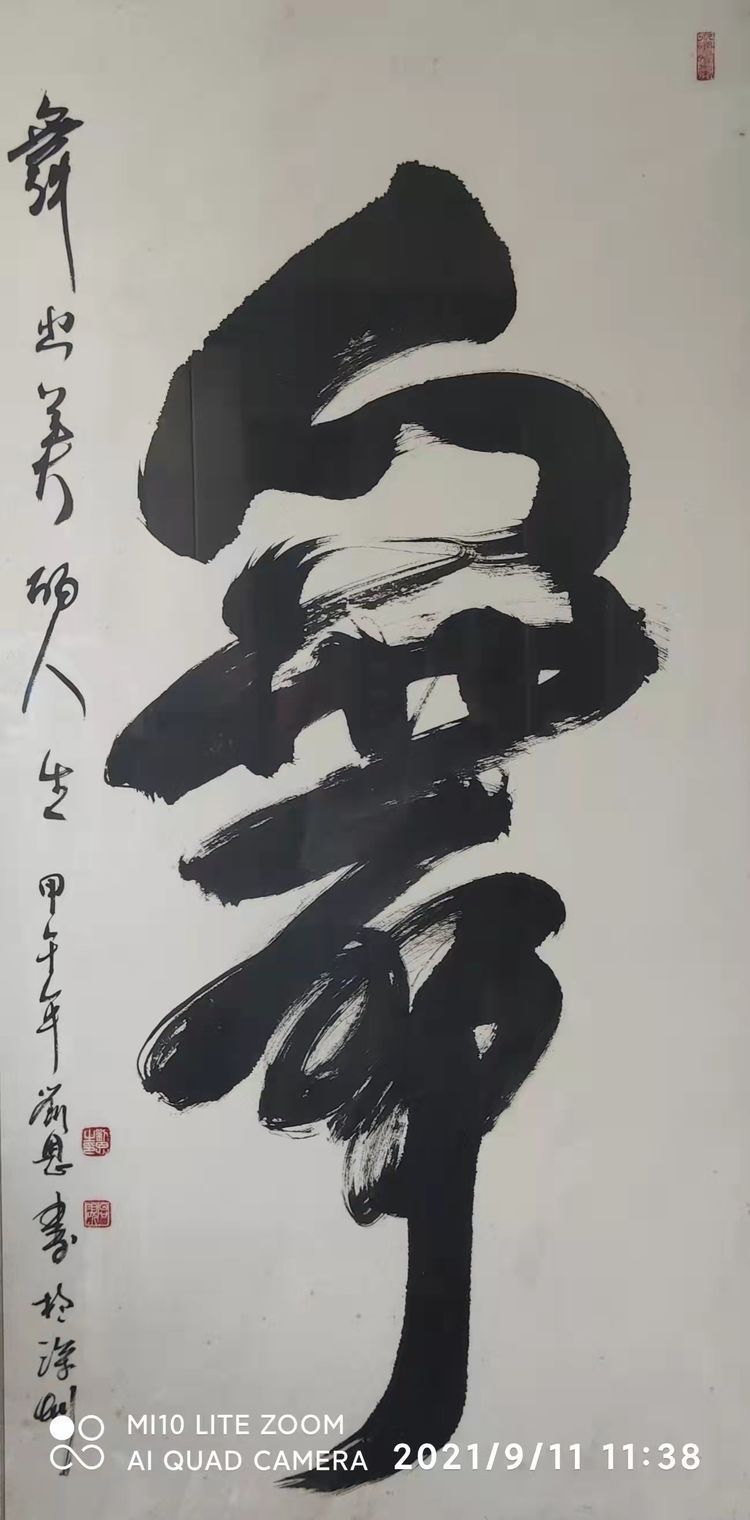 舞
舞出美的人生 甲午年 劉恩書於深圳
MI10 LITE ZOOM
AI QUAD CAMERA
2021/9/11 11:38